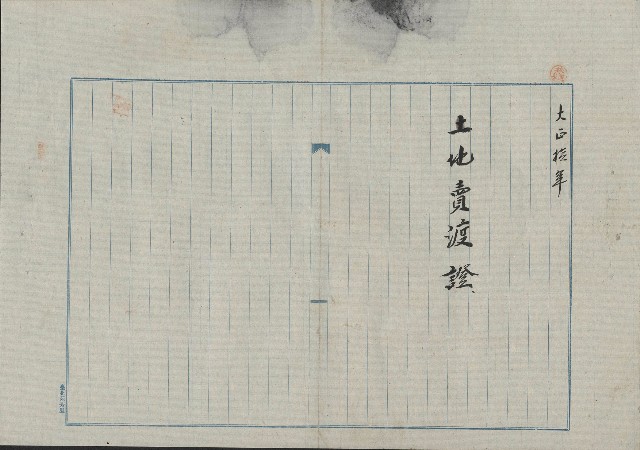 大正拾年
土地賣渡證